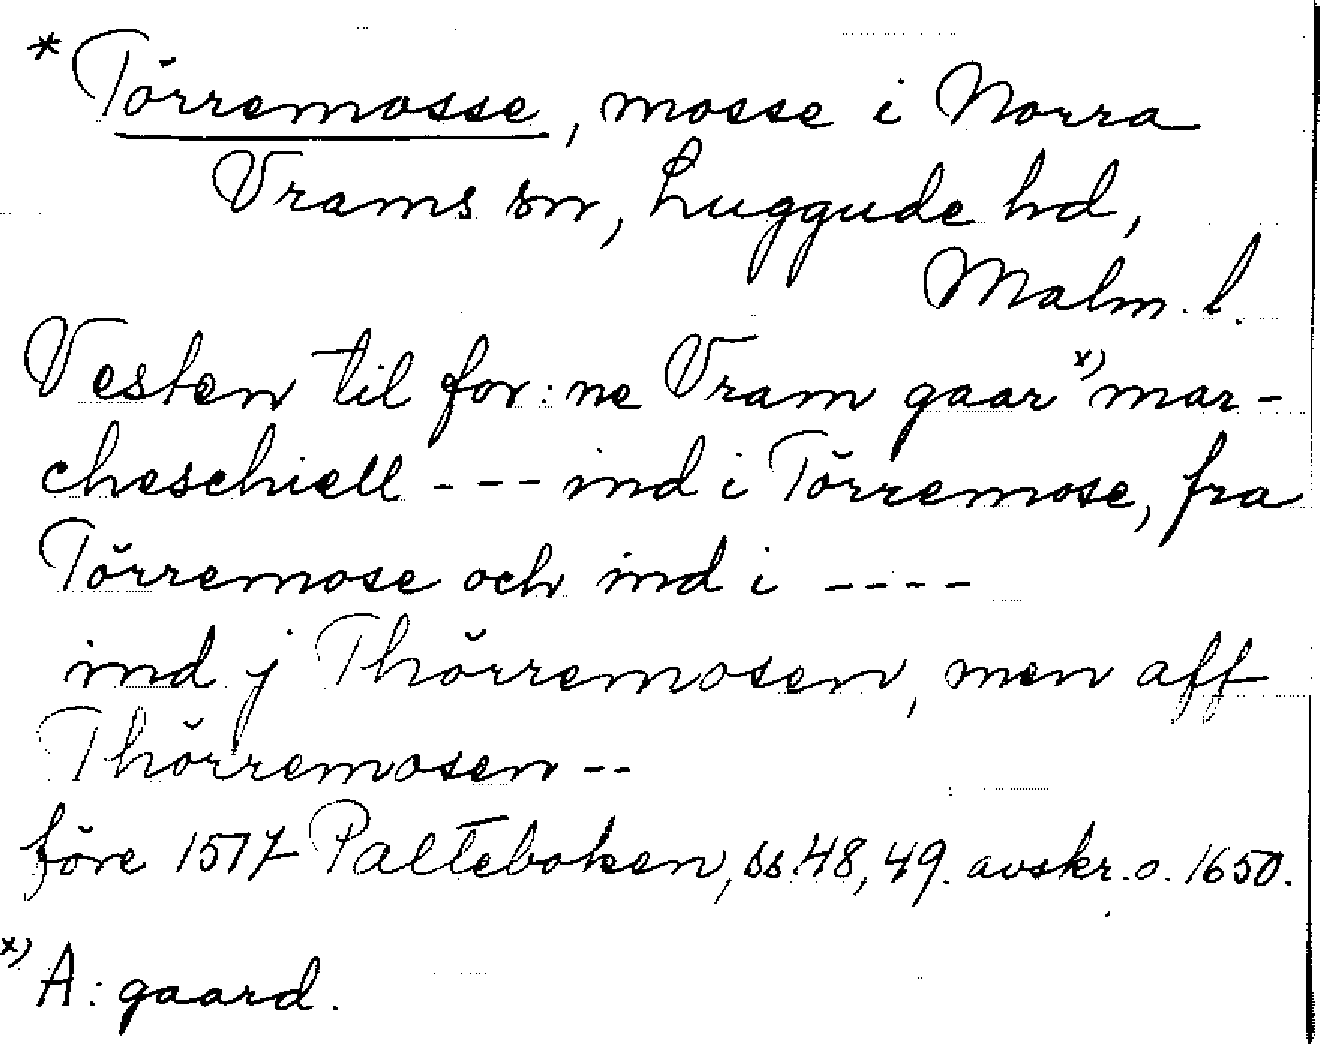 * Törremosse, mosse i Norra
Vrams sn, Luggude hd,
Malm. l.
Vesten til for:ne Vram gaar x) mar-
cheschiell --- ind i Törremose, fra
Törremose och ind i ----
ind j Thörremosen, men aff
Thörremosen --
före 1517 Palteboken, ss. 48, 49. avskr. o. 1650.
x) A: gaard.